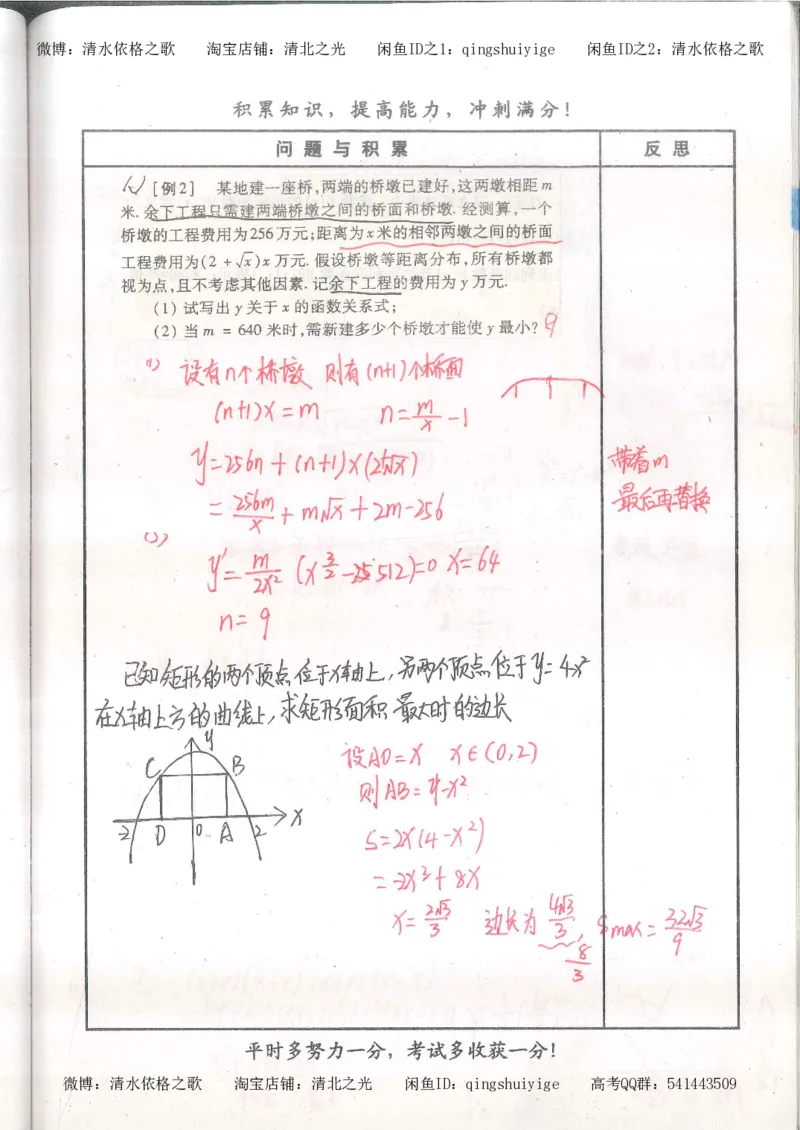 微博：清水依格之歌 淘宝店铺：清北之光 闲鱼ID之1：qingshuiyige 闲鱼ID之2：清水依格之歌
积累知识，提高能力，冲刺满分！
问题与积累 反思
[例2] 某地建一座桥,两端的桥墩已建好,这两墩相距m
米.余下工程只需建两端桥墩之间的桥面和桥墩.经测算,一个
桥墩的工程费用为256万元;距离为x米的相邻两墩之间的桥面
工程费用为(2+√x)x万元.假设桥墩等距离分布,所有桥墩都
视为点,且不考虑其他因素.记余下工程的费用为y万元.
(1) 试写出y关于x的函数关系式;
(2) 当m = 640米时,需新建多少个桥墩才能使y最小? 9
(1) 设有n个桥墩 则有(n+1)个桥面
(n+1)x=m n=m/x-1
y=256n+(n+1)x(2+√x)
=256m/x+m√x+2m-256
带着m
最后再替换
(2)
y'=m/2x²(x^(3/2)-512)=0 x=64
n=9
已知矩形的两个顶点位于x轴上,另两个顶点位于y=4-x²
在x轴上方的曲线上,求矩形面积最大时的边长
y
C B
x
2 D 0 A 2
设AO=x x∈(0,2)
则AB=4-x²
S=2x(4-x²)
=-2x³+8x
x=2√3/3 边长为4√3/3, 8/3 Smax=32√3/9
平时多努力一分，考试多收获一分！
微博：清水依格之歌 淘宝店铺：清北之光 闲鱼ID：qingshuiyige 高考QQ群：541443509